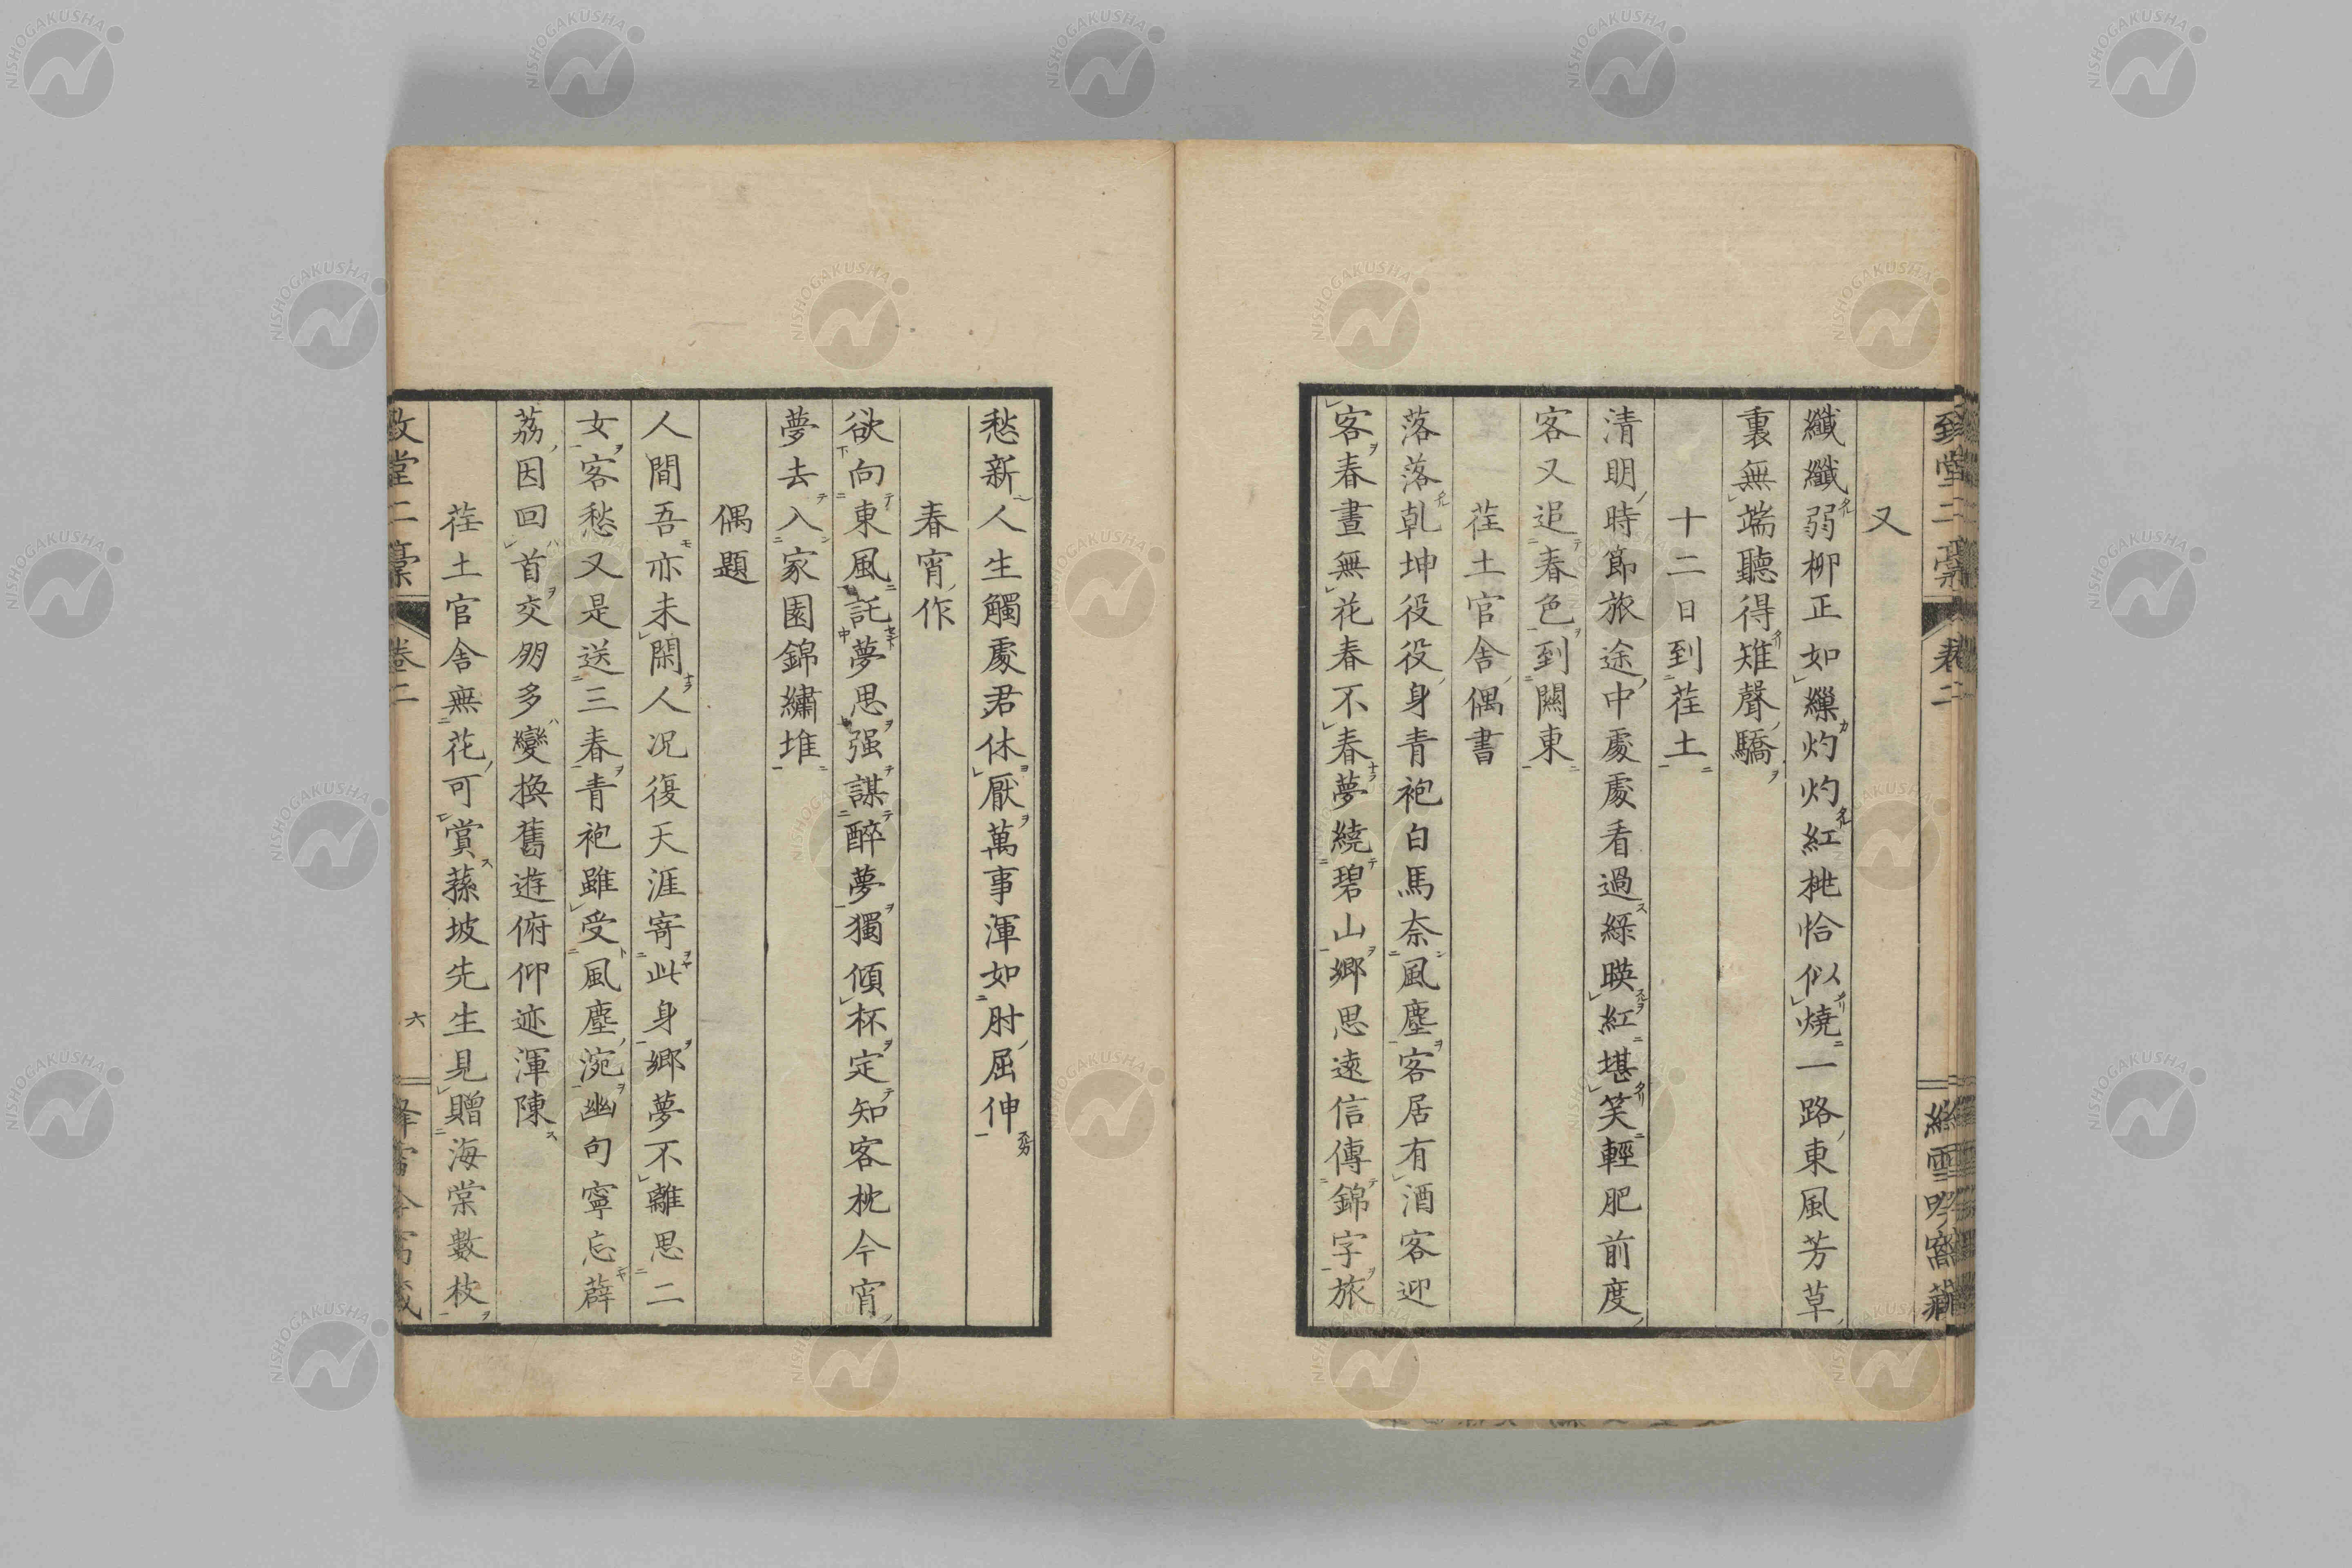 又
纖纖弱柳正如繅灼灼紅桃恰似燒一路東風芳草
裏無端聽得雉聲驕
十二日到荏土
清明時節旅途中處處看過綠暎紅堪笑輕肥前度
客又追春色到關東
荏土官舍偶書
落落乾坤役役身青袍白馬奈風塵客居有酒客迎
客春晝無花春不春夢繞碧山鄉思遠信傳錦字旅
愁新人生觸處君休厭萬事渾如肘屈伸
春宵作
欲向東風託夢思强謀醉夢獨傾杯定知客枕今宵
夢去入家園錦繡堆
偶題
人間吾亦未閑人况復天涯寄此身鄉夢不離思二
女客愁又是送三春青袍雖受風塵涴幽句寧忘薜
荔因回首交朋多變換舊遊俯仰迹渾陳
荏土官舍無花可賞蓀坡先生見贈海棠數枝
致堂二稾 卷二 六
NISHOGAKUSHA